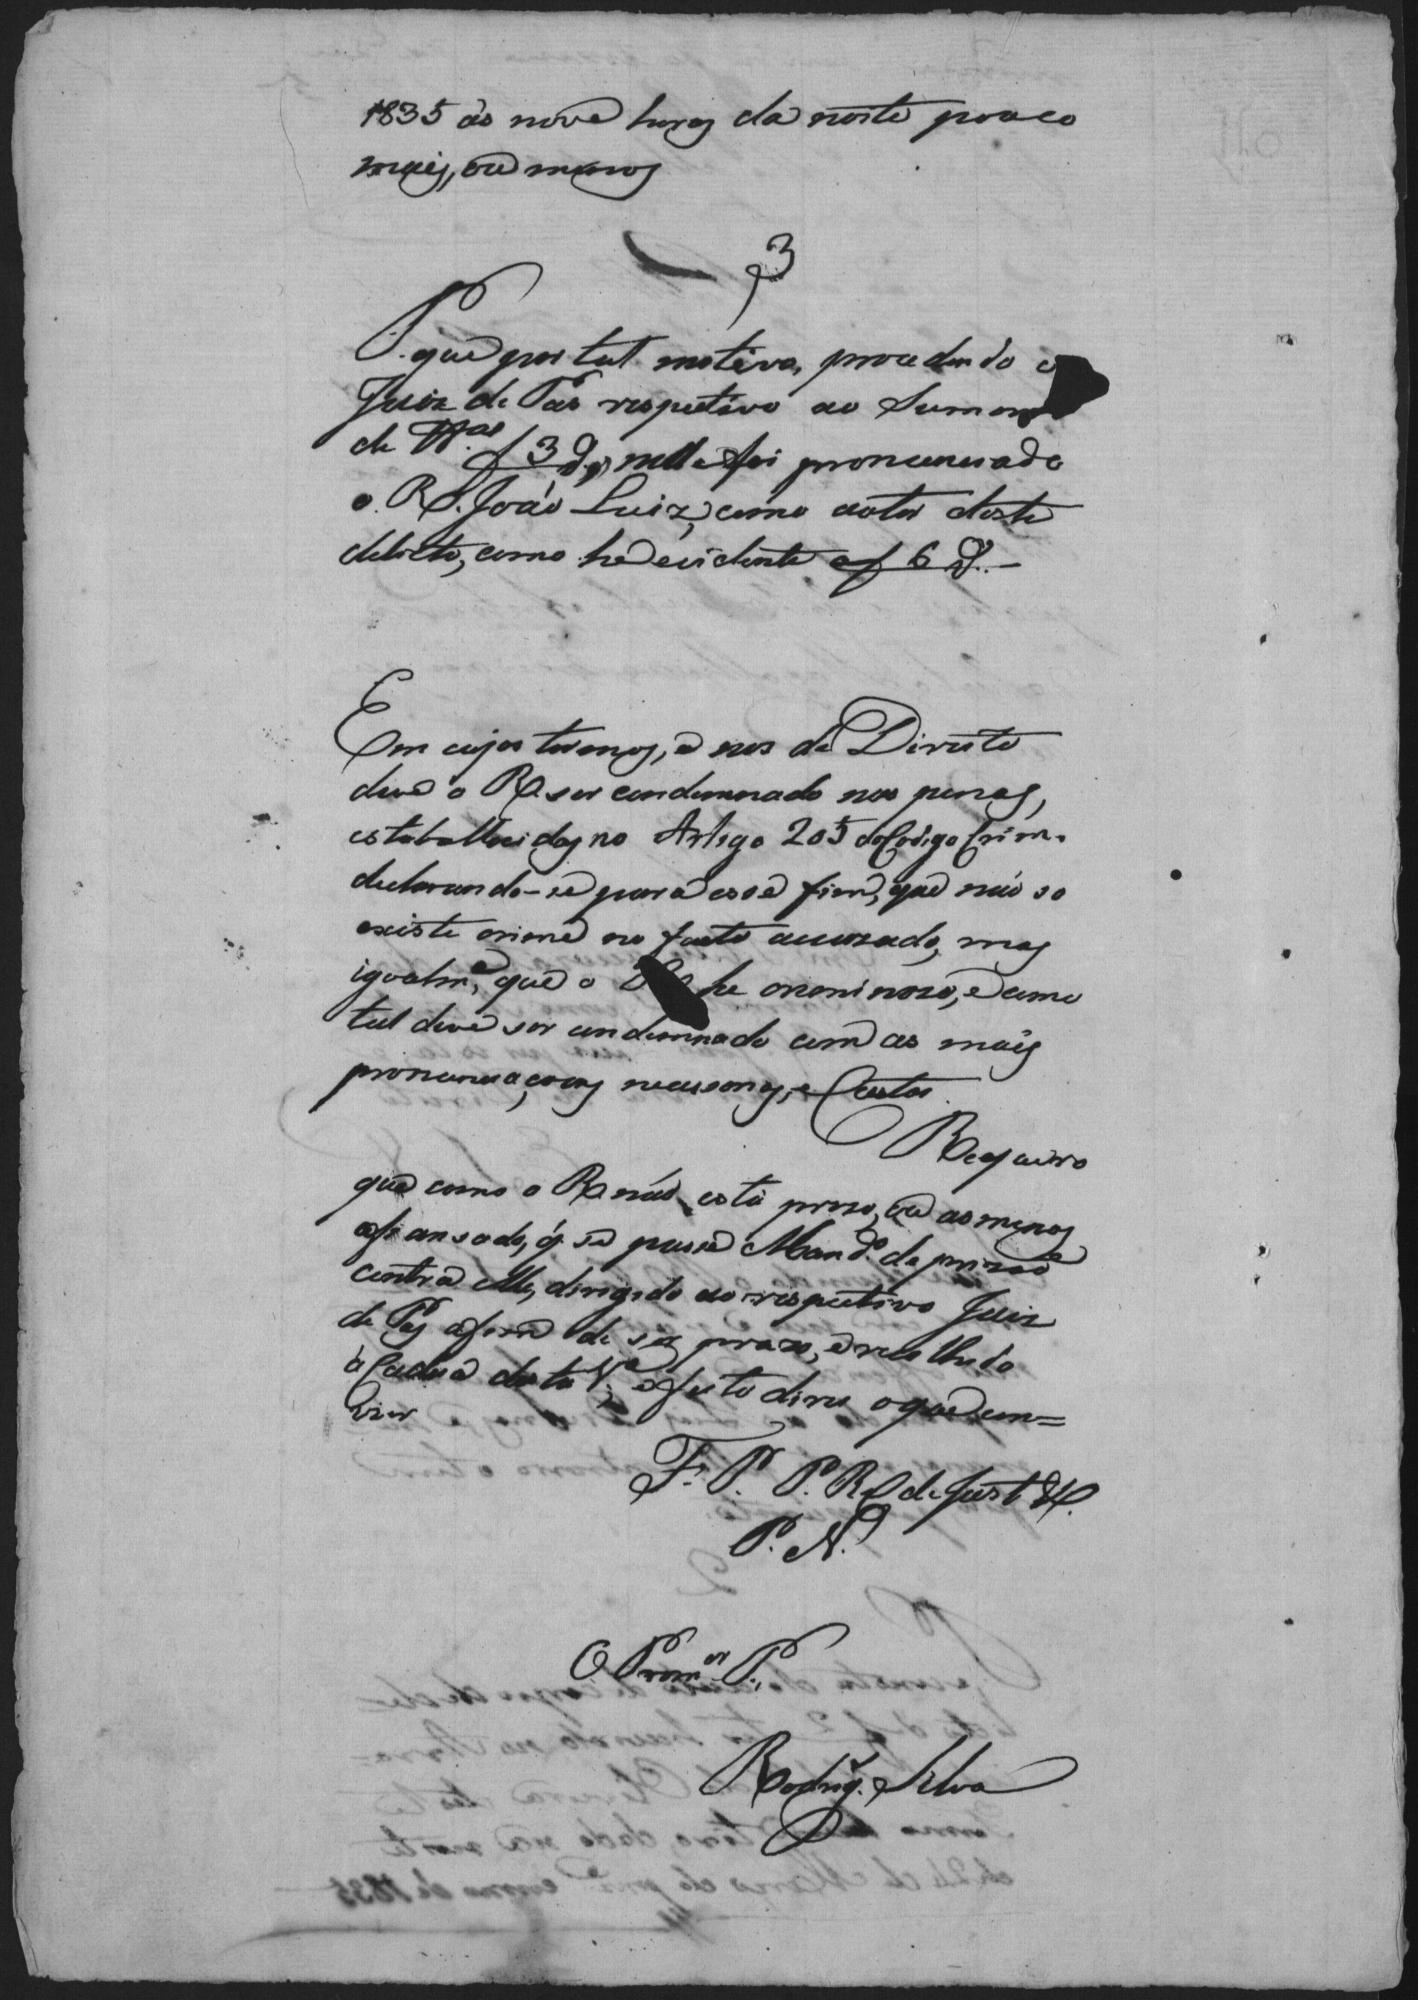 1835 às nove horas da noite pouco
mais, ou menos
3
P. que por tal motivo, procedendo o
Juiz de Pas respetivo ao Summ
de Tt.as f 3 nelle foi pronunciado
o R João Luiz, como autor deste
delicto, como he evidente a f 6
Em cujos termos, e nos de Direito
deve o R ser condemnado nas penas,
estabellecidas no Artigo 205 do Codigo Crim.
declarando-se para esse fim, que não so
existe crime no facto accusado, mas
igualm.e, que o he criminozo, e como
tal deve ser condemnado com as mais
pronunciaçoens necessarias, e Custas.
Requeiro
que como o R não está prezo, ou ao menos
afiansado, q se passe Mand.o de prizão
contra elle, dirigido ao respectivo Juiz
de Pas afim de ser prezo, e recolhido
à Cadea desta V.a, e feito direi o que con=
vier
F. P. P. R de Just
P. N.
O Prom.or P.
Rodrig. Silva